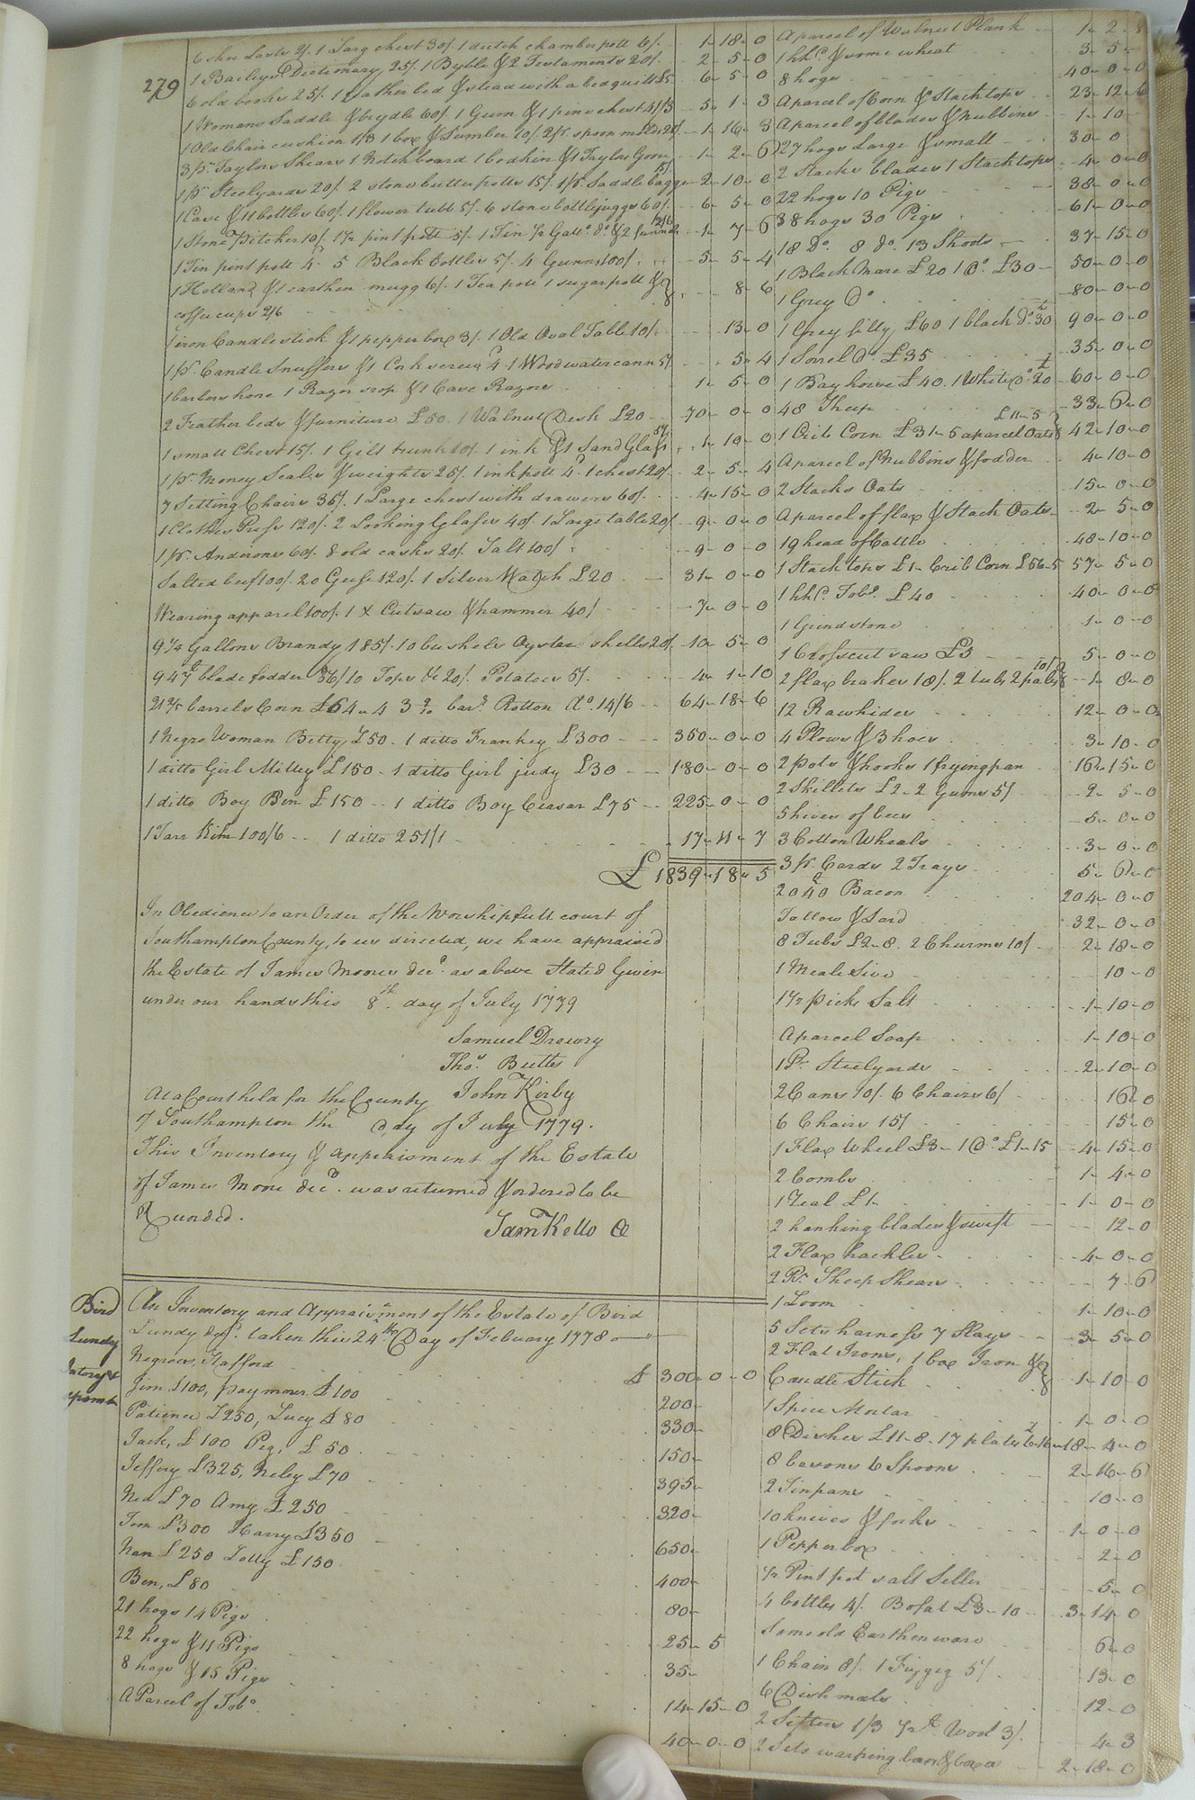 279
6 shoe Lasts 2/. 1 Larg chest 30/. 1 dutch chamber pott 6/. 1-18-0
1 Baileys Dictionary 25/. 1 Byble & 2 Testaments 20/. 2-5-0
6 old books 25/. 1 feather bed & stead with a bedquilt £5 6-5-0
1 Womans Saddle & brydle 60/. 1 Gum & 1 pine chest 41/3 5-1-3
1 Old Chair cushion 1/3 1 box & Lumber 10/. 2 pr. spoon molds 20/. 1-16-3
3 pr. Taylors Shears 1 Notchboard 1 bodkin & 1 Taylors Goose 1-2-6
1 pr Steelyards 20/. 2 stone butter potts 15/. 1 pr. Saddle baggs 15/. 2-10-0
1 Case & 11 bottles 60/. 1 flower tubb 5/. 6 stone bottle juggs 60/. 6-5-0
1 Stone Pitcher 10/. 1 Qr pint pott 5/. 1 Tin ½ Gall. do. & 2 funnels 12/6 1-7-6
1 Tin pint pott 4d. 5 Black bottles 5/. 4 Gunns 100/. 5-5-4
1 Holland & 1 earthen mugg 6/. 1 Tea pott 1 sugar pott &
coffee cups 2/6 8-6
1 iron Candlestick & 1 pepper box 3/. 1 Old Oval Table 10/. 13-0
1 pr. Candle Snuffers & 1 Cork screw 4d. 1 Wood water cann 5/. 5-4
1 barbers hone 1 Razor strop & 1 Case Razors 1-5-0
2 Feather beds & furniture £50. 1 Walnut Desk £20 70-0-0
1 small Chest 15/. 1 Gilt trunk 10/. 1 ink & 1 Sand Glass 5/. 1-10-0
1 pr. Money Scales & weights 25/. 1 ink pott 4d. 1 chest 20/. 2-5-4
7 Sitting Chairs 35/. 1 Large chest with drawers 60/. 4-15-0
1 Cloths Press 120/. 2 Looking Glasses 40/. 1 Large table 20/. 9-0-0
1 pr. Andirons 60/. 8 old casks 20/. Salt 100/. 9-0-0
Salted beef 100/. 20 Geese 120/. 1 Silver Watch £20 31-0-0
Wearing apparel 100/. 1 X Cutsaw & hammer 40/ 7-0-0
9¼ Gallons Brandy 185/. 10 bushels Oyster shells 20/. 10-5-0
947 lb blade fodder 56/10 Tops &c 20/. Potatoes 5/. 4-1-10
21½ barrels Corn £64-4 3 do bars. Rotton do. 14/6 64-18-6
1 Negro Woman Betty £50. 1 ditto Frankey £300 350-0-0
1 ditto Girl Milley £150. 1 ditto Girl judy £30 180-0-0
1 ditto Boy Ben £150 1 ditto Boy Ceasar £75 225-0-0
1 Tarr Kiln 100/6 1 ditto 251/1 17-11-7
£1839-18-5
In Obedience to an Order of the Worshipfull court of
Southampton County, to us directed, we have appraised
the Estate of James Moores decd. as above Stated Given
under our hands this 8th. day of July 1779
Samuel Drewry
Thos. Butts
John Kirby
At a Court held for the County
of Southampton the day of July 1779.
This Inventory & Appraisment of the Estate
of James Moore decd. was returned & ordered to be
Recorded.
Saml Kello Cl
Bird
Lundy
An Inventory and Appraisement of the Estate of Bird
Lundy decd. taken this 24th Day of Febuary 1778
Negroes, Stafford £ 300-0-0
Jim £100, paymore £100 200-
Patience £250, Lucy £80 330-
Jack, £100 Peg, £50 150-
Jeffery £325, Neley £70 395-
Ned £70 Amy £250 320-
Tom £300 Harry £350 650-
Nan £250 Lotty £150 400-
Ben, £80 80-
21 hogs 14 Pigs 25-5
22 hogs & 11 Pigs 35-
8 hogs & 15 Pigs 14-15-0
A Parcel of Tobo. 40-0-0
A parcel of Walnut Plank 1-2-8
1 hhd. & some wheat 3-5-
8 hogs 40-0-0
A parcel of Corn & Stack tops 23-12-6
A parcel of blades & nubbins 1-10-
27 hogs Large & small 30-0
2 Stacks blades 1 Stack tops 4-0-0
22 hogs 10 Pigs 38-0-0
38 hogs 30 Pigs 61-0-0
18 Do. 8 do. 13 Shoats 37-15-0
1 Black Mare £20 1 Do. £30 50-0-0
1 Grey Do. 80-0-0
1 Grey filly £60 1 black do. £30 90-0-0
1 Sorrel Do. £35 35-0-0
1 Bay horse £40. 1 White do £20 60-0-0
48 Sheep 33-6-0
1 Crib Corn £31-5 a parcel Oats £11-5 42-10-0
A parcel of Nubbins & fodder 4-10-0
2 Stacks Oats 15-0-0
A parcel of flax & Stack Oats 2-5-0
19 head of Cattle 48-10-0
1 Stack tops £1- Crib Corn £56-5 57-5-0
1 hhd. Tobo. £40 40-0-0
1 Grindstone 1-0-0
1 Crosscut saw £5 5-0-0
2 flax brakes 18/. 2 tubs 2 pails 10/ 1-8-0
12 Rawhides 12-0-0
4 Plows & 3 hoes 3-10-0
2 pots & hooks 1 fryingpan 16-15-0
2 Skillets £2-2 Gums 5/ 2-5-0
5 hives of bees 5-0-0
3 Cotton Wheals 3-0-0
3 pr. Cards 2 Trays 5-6-0
2040 lb Bacon 204-0-0
Tallow & Lard 32-0-0
8 Tubs £2-8. 2 Churns 10/. 2-18-0
1 Meale Sive 10-0
1½ pecks Salt 1-10-0
A parcel Soap 1-10-0
1 Pr. Steelyards 2-10-0
2 Cans 10/. 6 Chairs 6/ 16-0
6 Chairs 15/ 15-0
1 Flax Wheel £3- 1 Do. £1-15 4-15-0
2 Combs 1-4-0
1 Real £1- 1-0-0
2 hanking blades & swift 12-0
2 Flax hackles 4-0-0
2 Pr. Sheep Shears 7-6
1 Loom 1-10-0
5 Sets harness 7 Slays 3-5-0
2 Flat Irons, 1 box Iron &
Candle Stick 1-10-0
1 Spice Mortar 1-0-0
8 Dishes £11-8. 17 plates £6-16 18-4-0
8 basons 6 Spoons 2-16-6
2 Tinpans 10-0
10 knives & forks 1-0-0
1 Pepper box 2-0
½ Pint pot salt Seller 5-0
4 bottles 4/. Bofat £3-10 3-14-0
Some old Earthenware 6-0
1 Chain 8/. 1 Figgeg 5/. 13-0
6 Dish mats 12-0
2 Sifters 1/3 ½ lb. Wool 3/. 4-3
2 sets warping bars & boxes 2-18-0